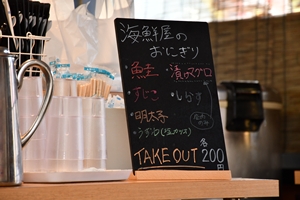 海鮮屋の
おにぎり
・鮭 ・漬けマグロ
・すじこ ・しらす
・明太子
TAKE OUT 各200円